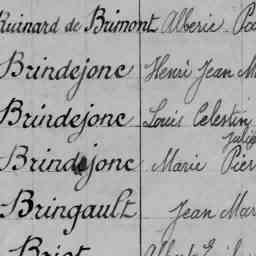 Ruinard de Brimont Alberic
Brindejonc Henri Jean M
Brindejonc Louis Célestin
Julie
Brindejonc Marie Pier
Bringault Jean Mar
Briot Albert